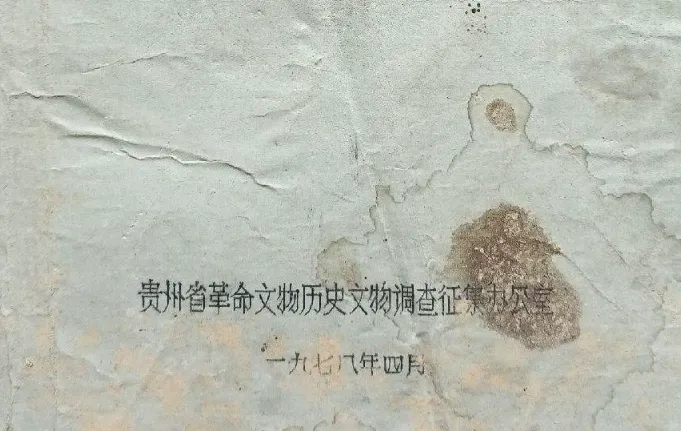 贵州省革命文物历史文物调查征集办公室
一九七八年四月